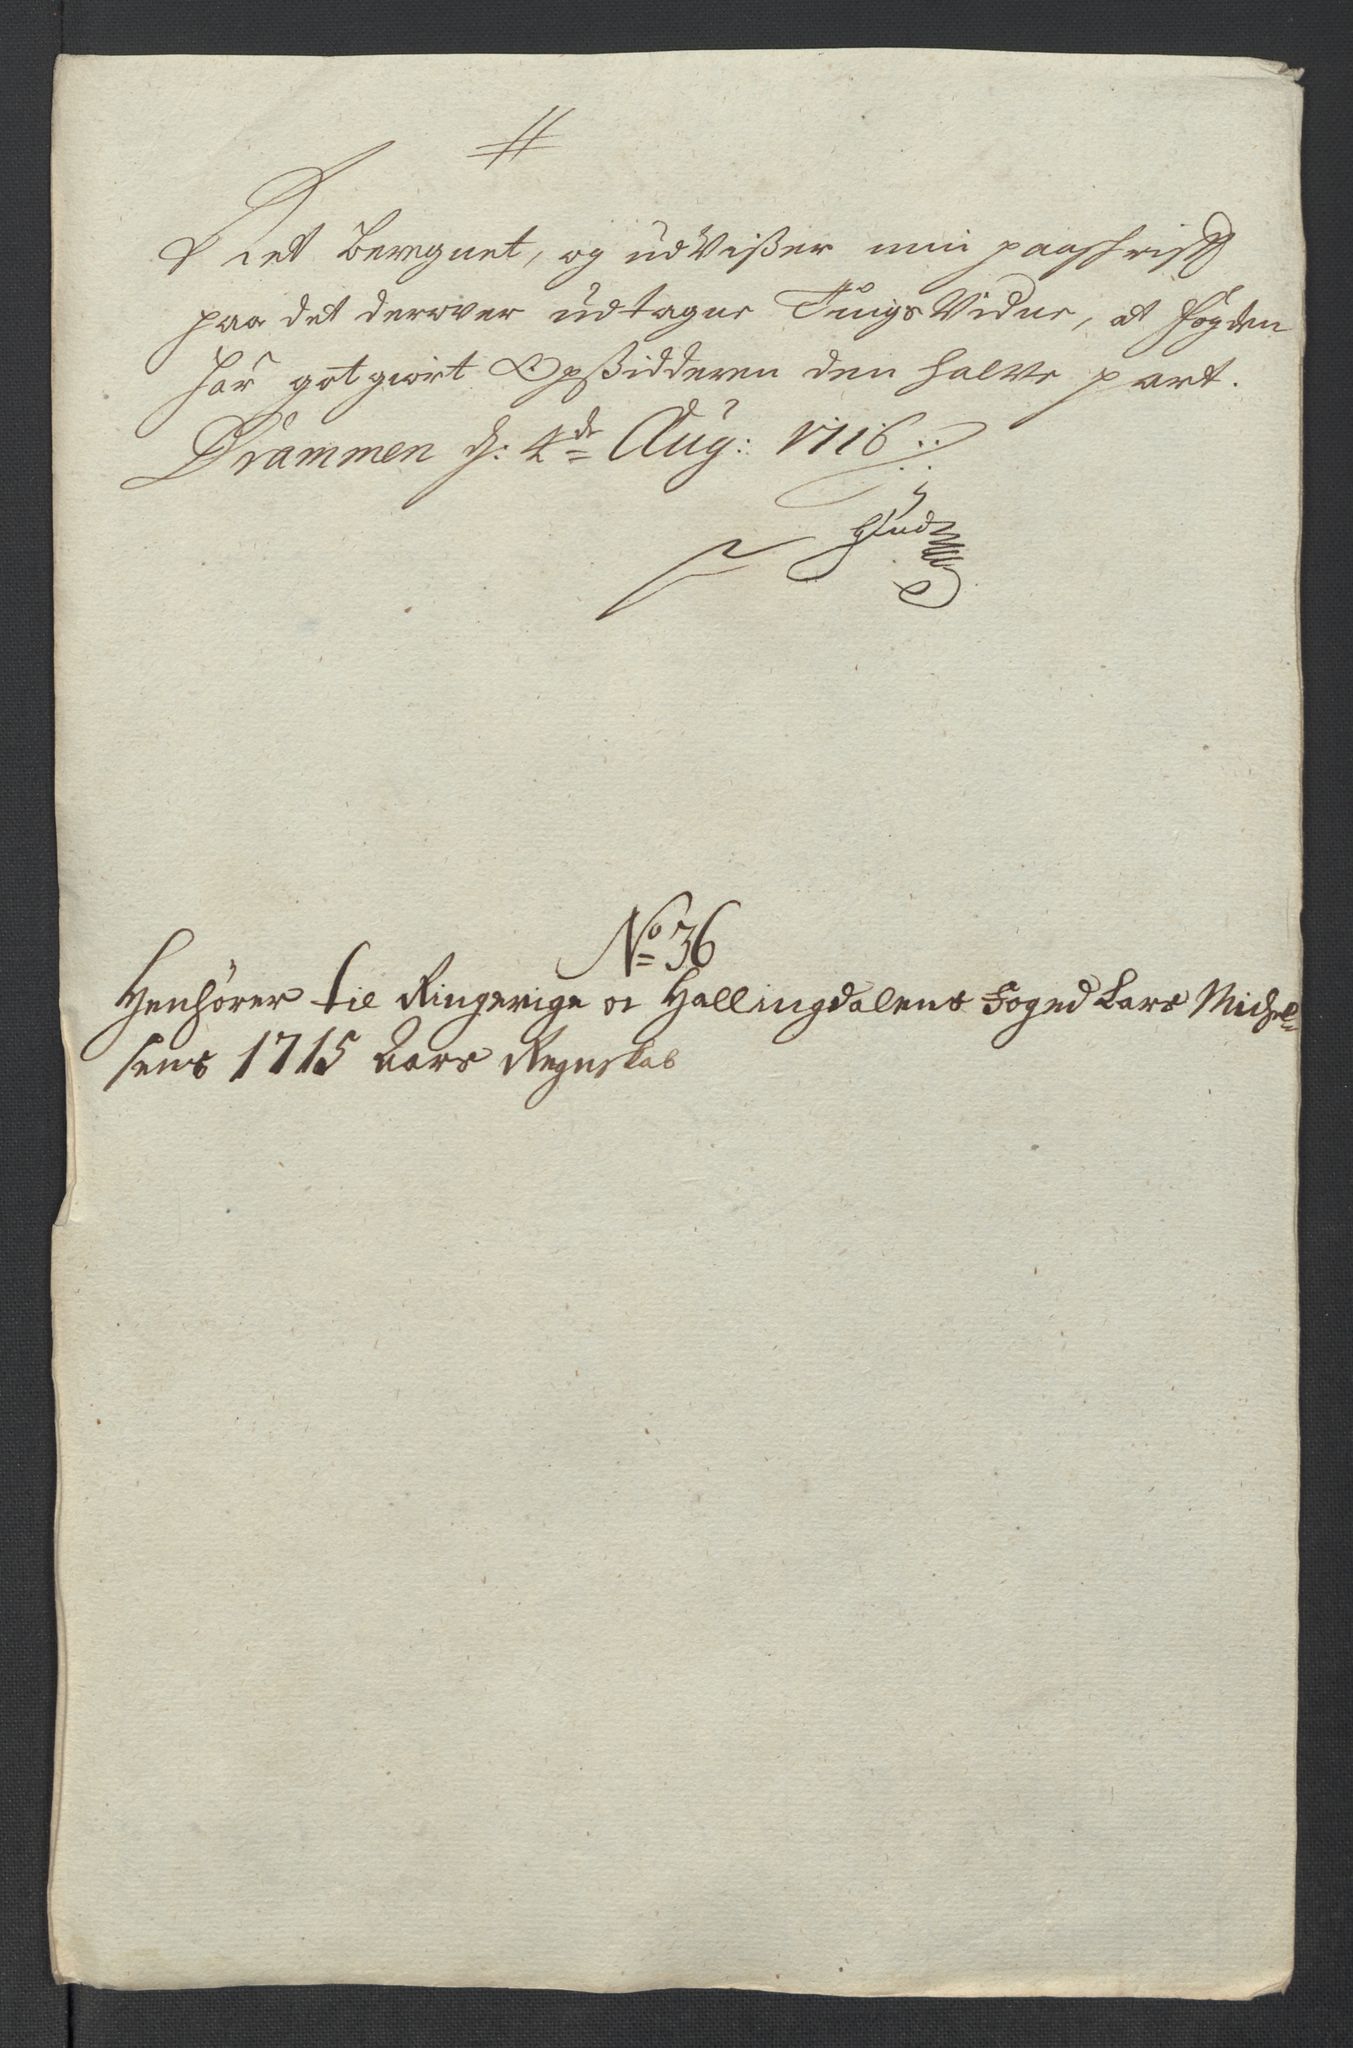 #
Ret Beregnet, og udVißer min paaskrift
paa det derover udtagne Tings Vidne, at fogden
har got giort Opßidderen den halve part.
Drammen d: 4de Aug: 1716
No 36
Henhörer til Ringerige oc Hallingdalens Foged Lars Michel-
sens 1715 Aars Regnskab